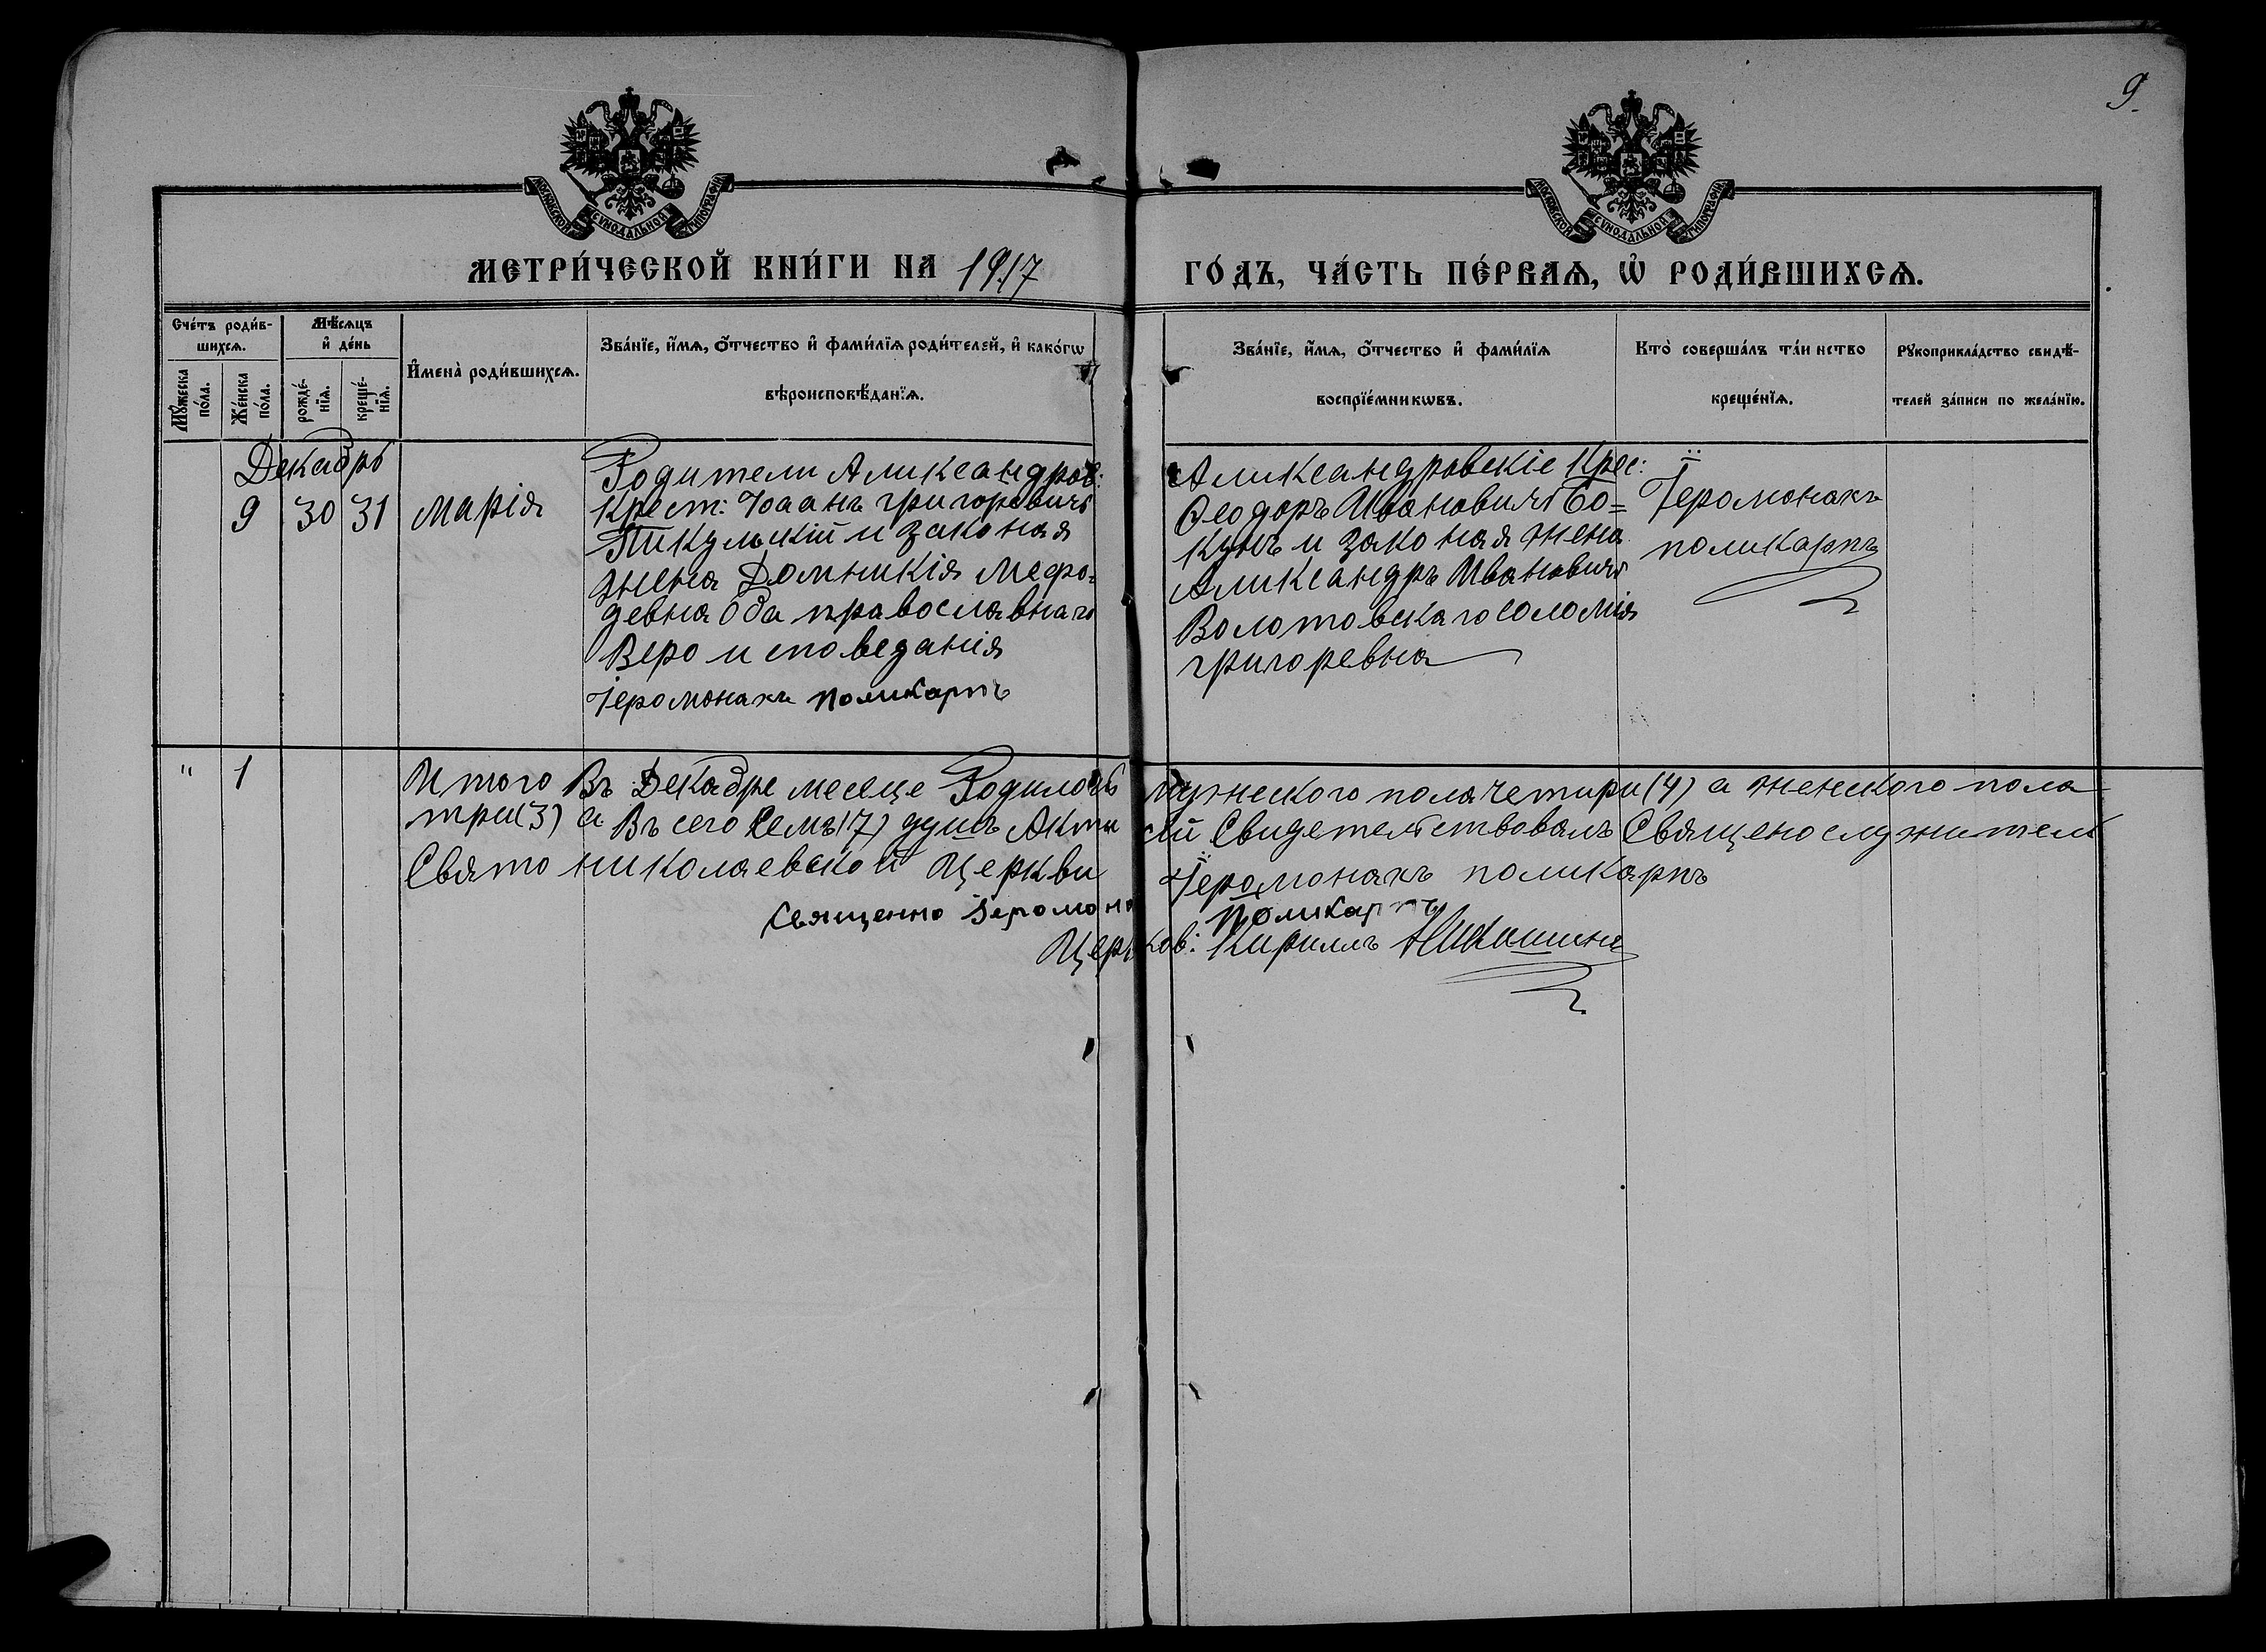 9.
МОСКОВСКОЙ СУНОДАЛЬНОЙ ТИПОГРАФІИ
МОСКОВСКОЙ СУНОДАЛЬНОЙ ТИПОГРАФІИ
МЕТРИ́ЧЕСКОЙ КНИ́ГИ НА 1917 ГО́ДЪ, ЧА́СТЬ ПЕ́РВАѦ, Ѡ҆ РОДИ́ВШИХСѦ.
Сче́тъ роди́в-
шихсѧ.
Мꙋ́жеска
по́ла.
Же́нска
по́ла.
Мѣ́сѧцъ
и҆ де́нь
рожде́-
нїѧ.
креще́-
нїѧ.
И҆мена̀ роди́вшихсѧ.
Зва́нїе, и҆́мѧ, ѻ҆́тчество и҆ фами́лїѧ роди́телей, и҆ како́гѡ
вѣроисповѣ́данїѧ.
Зва́нїе, и҆́мѧ, ѻ҆́тчество и҆ фами́лїѧ
воспрїе́мникѡвъ.
Кто̀ соверша́лъ та́инство
креще́нїѧ.
Рꙋкоприкла́дство свидѣ́-
телей за́писи по жела́нїю.
Декабрь
9 30 31 Марія
Родители Аликсандров:
Крест: Іоаанъ григоровичь
Пикульцкій и законая
жена Домникія Мефо-
девна Оба православнаго
Вероисповеданія
Іеромонахъ поликарпъ
Аликсандровскіе Крес:
Ѳеодоръ Ивановичь Бо=
кунъ и законая жена
Аликсандръ Ивановичь
Волотовскаго Соломія
григоревна
Іеромонахъ
поликарпъ
" 1
Итого Въ Декабре месеце Родилось мужеского пола четири (4) а женского пола
три (3) а Въсего Семъ (7) душъ Акти сій Свидетельствовалъ Священослужитель
Свято николаевской Церкви Іеромонахъ поликарпъ
Священно Іеромона Поликарпъ
Церков: Кириллъ